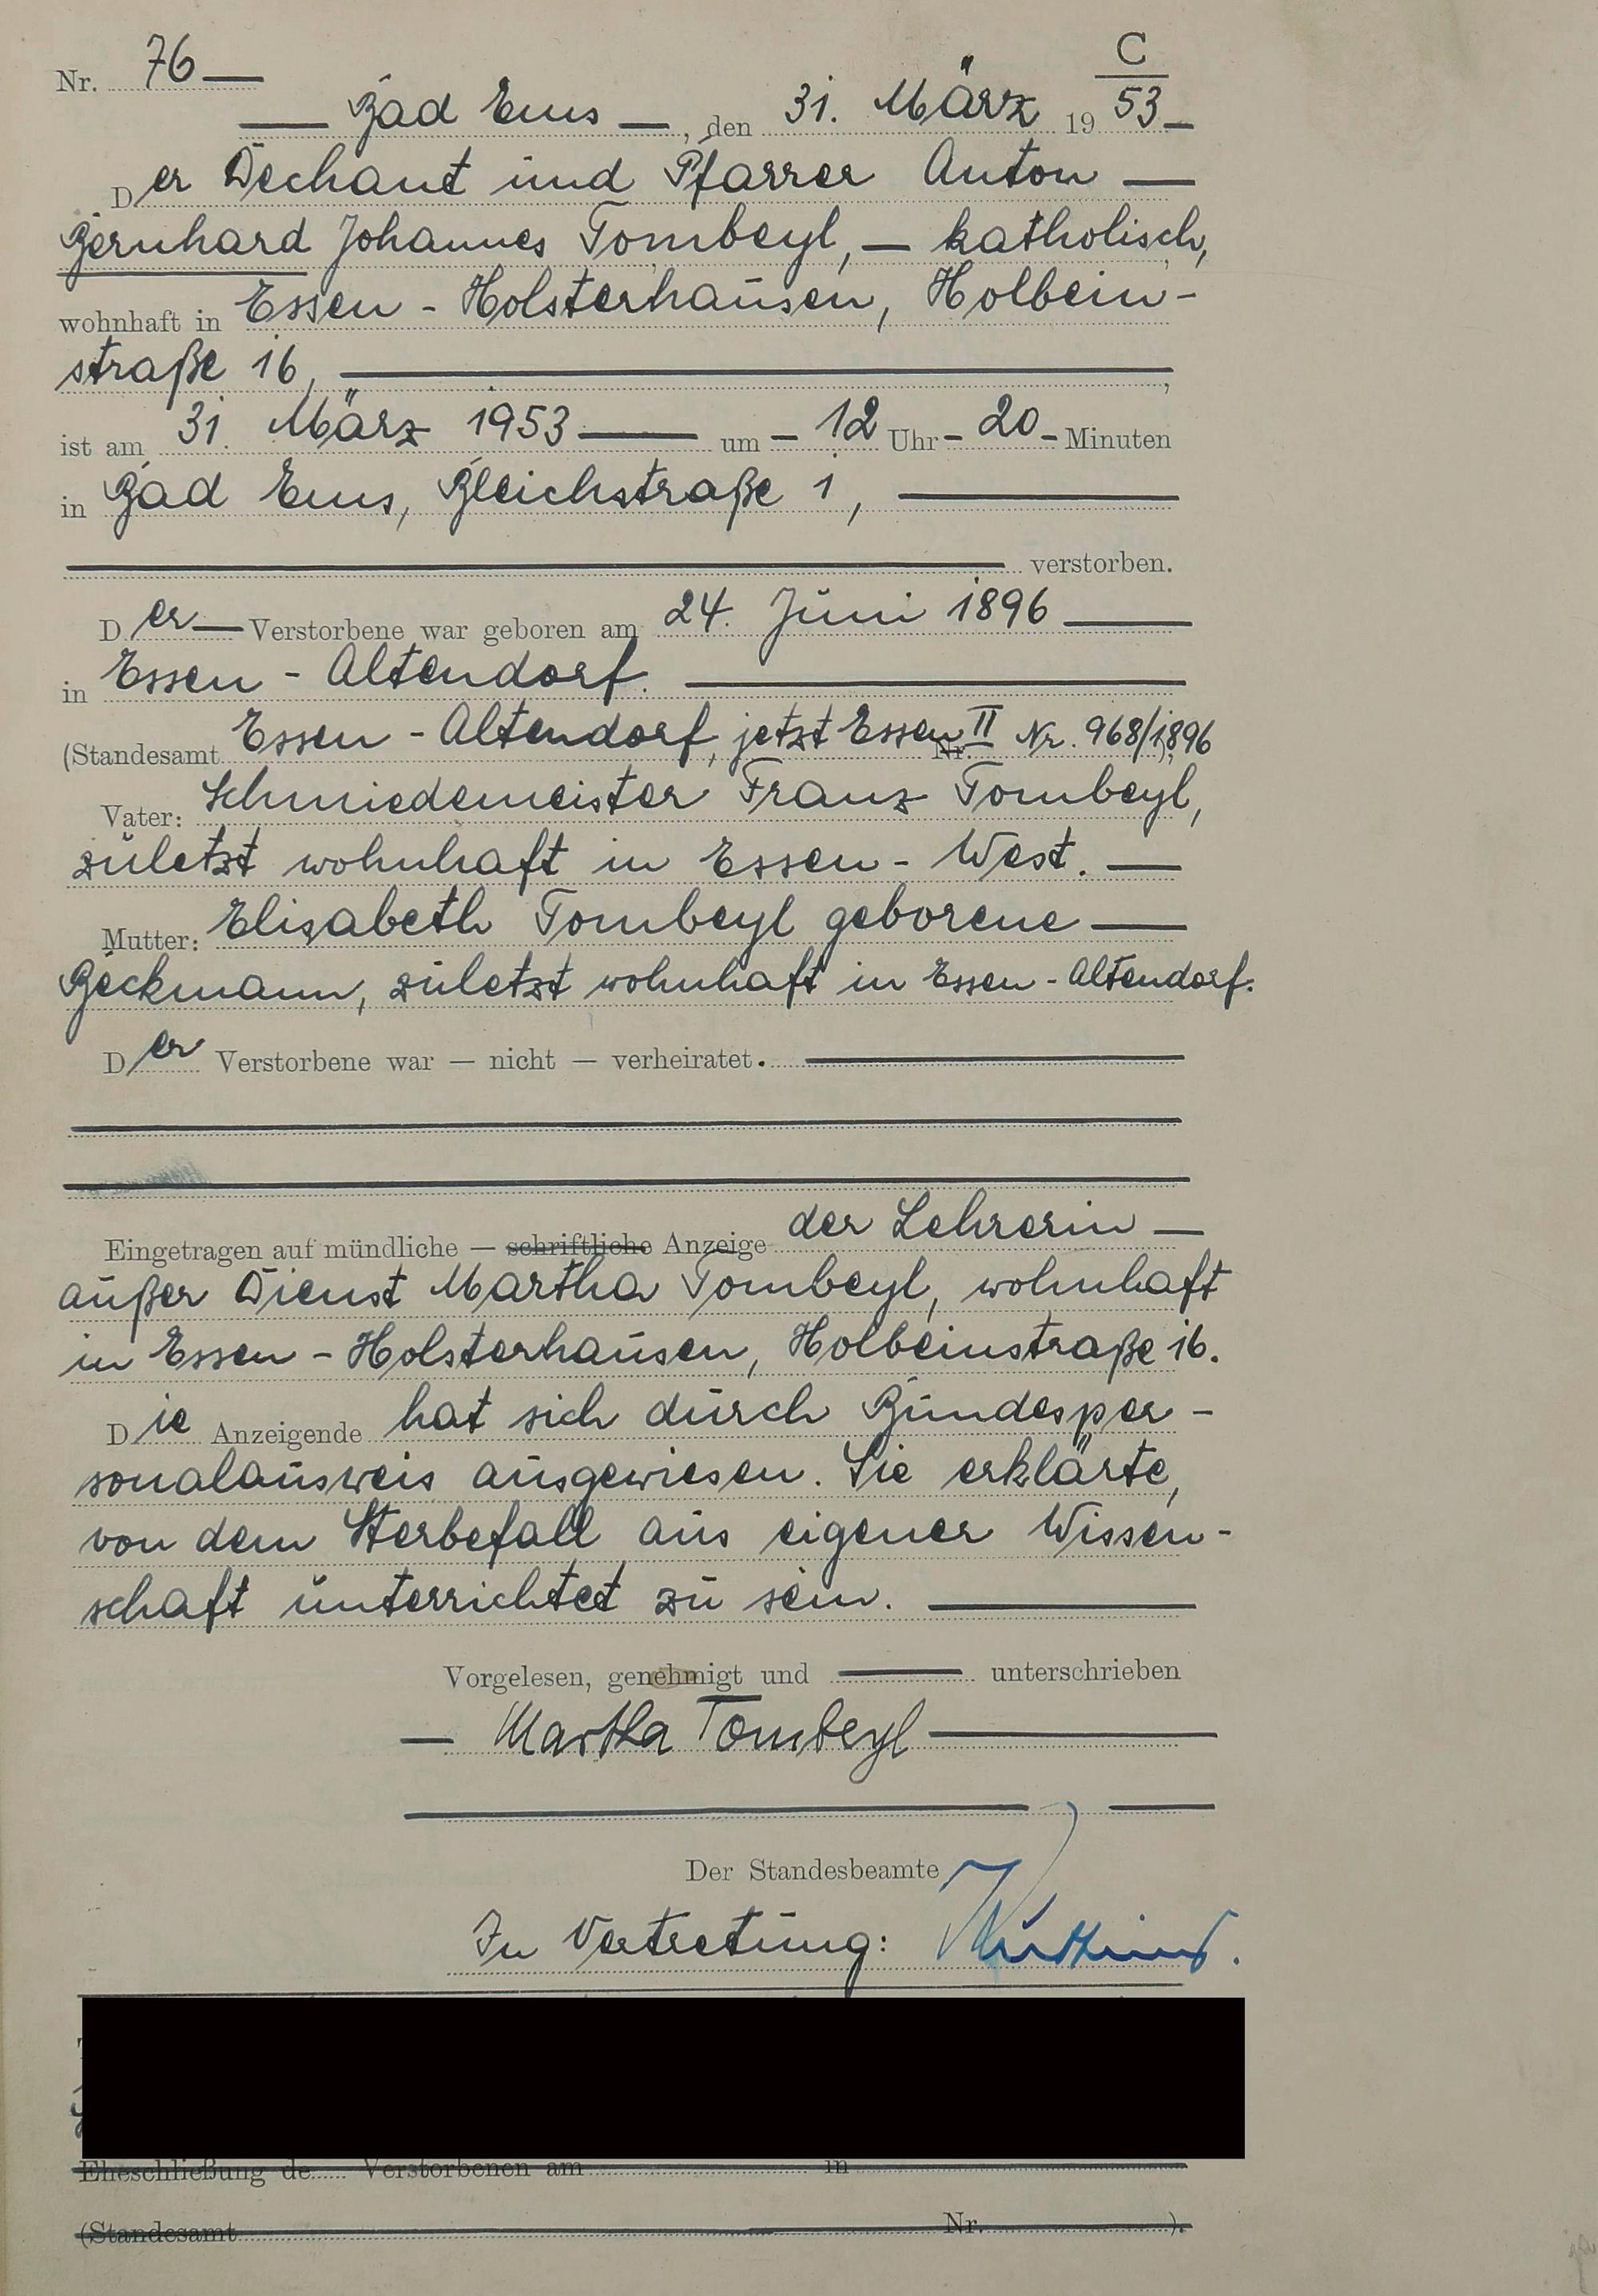 C
Nr. 76 —
— Bad Ems —, den 31. März 1953 —
Der Dechant und Pfarrer Anton —
Bernhard Johannes Tombeyl, — katholisch,
wohnhaft in Essen - Holsterhausen, Holbein-
straße 16, — ,
ist am 31. März 1953 — um — 12 Uhr — 20 — Minuten
in Bad Ems, Bleichstraße 1, —
— verstorben.
Der — Verstorbene war geboren am 24. Juni 1896 —
in Essen - Altendorf. —
(Standesamt Essen - Altendorf, jetzt Essen II Nr. Nr. 968/1896),
Vater: Schmiedemeister Franz Tombeyl,
zuletzt wohnhaft in Essen - West. —
Mutter: Elisabeth Tombeyl geborene —
Beckmann, zuletzt wohnhaft in Essen - Altendorf.
Der Verstorbene war — nicht — verheiratet. —
Eingetragen auf mündliche — schriftliche Anzeige der Lehrerin —
außer Dienst Martha Tombeyl, wohnhaft
in Essen - Holsterhausen, Holbeinstraße 16.
Die Anzeigende hat sich durch Bundesper-
sonalausweis ausgewiesen. Sie erklärte,
von dem Sterbefall aus eigener Wissen-
schaft unterrichtet zu sein. —
Vorgelesen, genehmigt und — unterschrieben
— Martha Tombeyl —
Der Standesbeamte
In Vertretung:
Eheschließung de Verstorbenen am in
(Standesamt Nr. ).